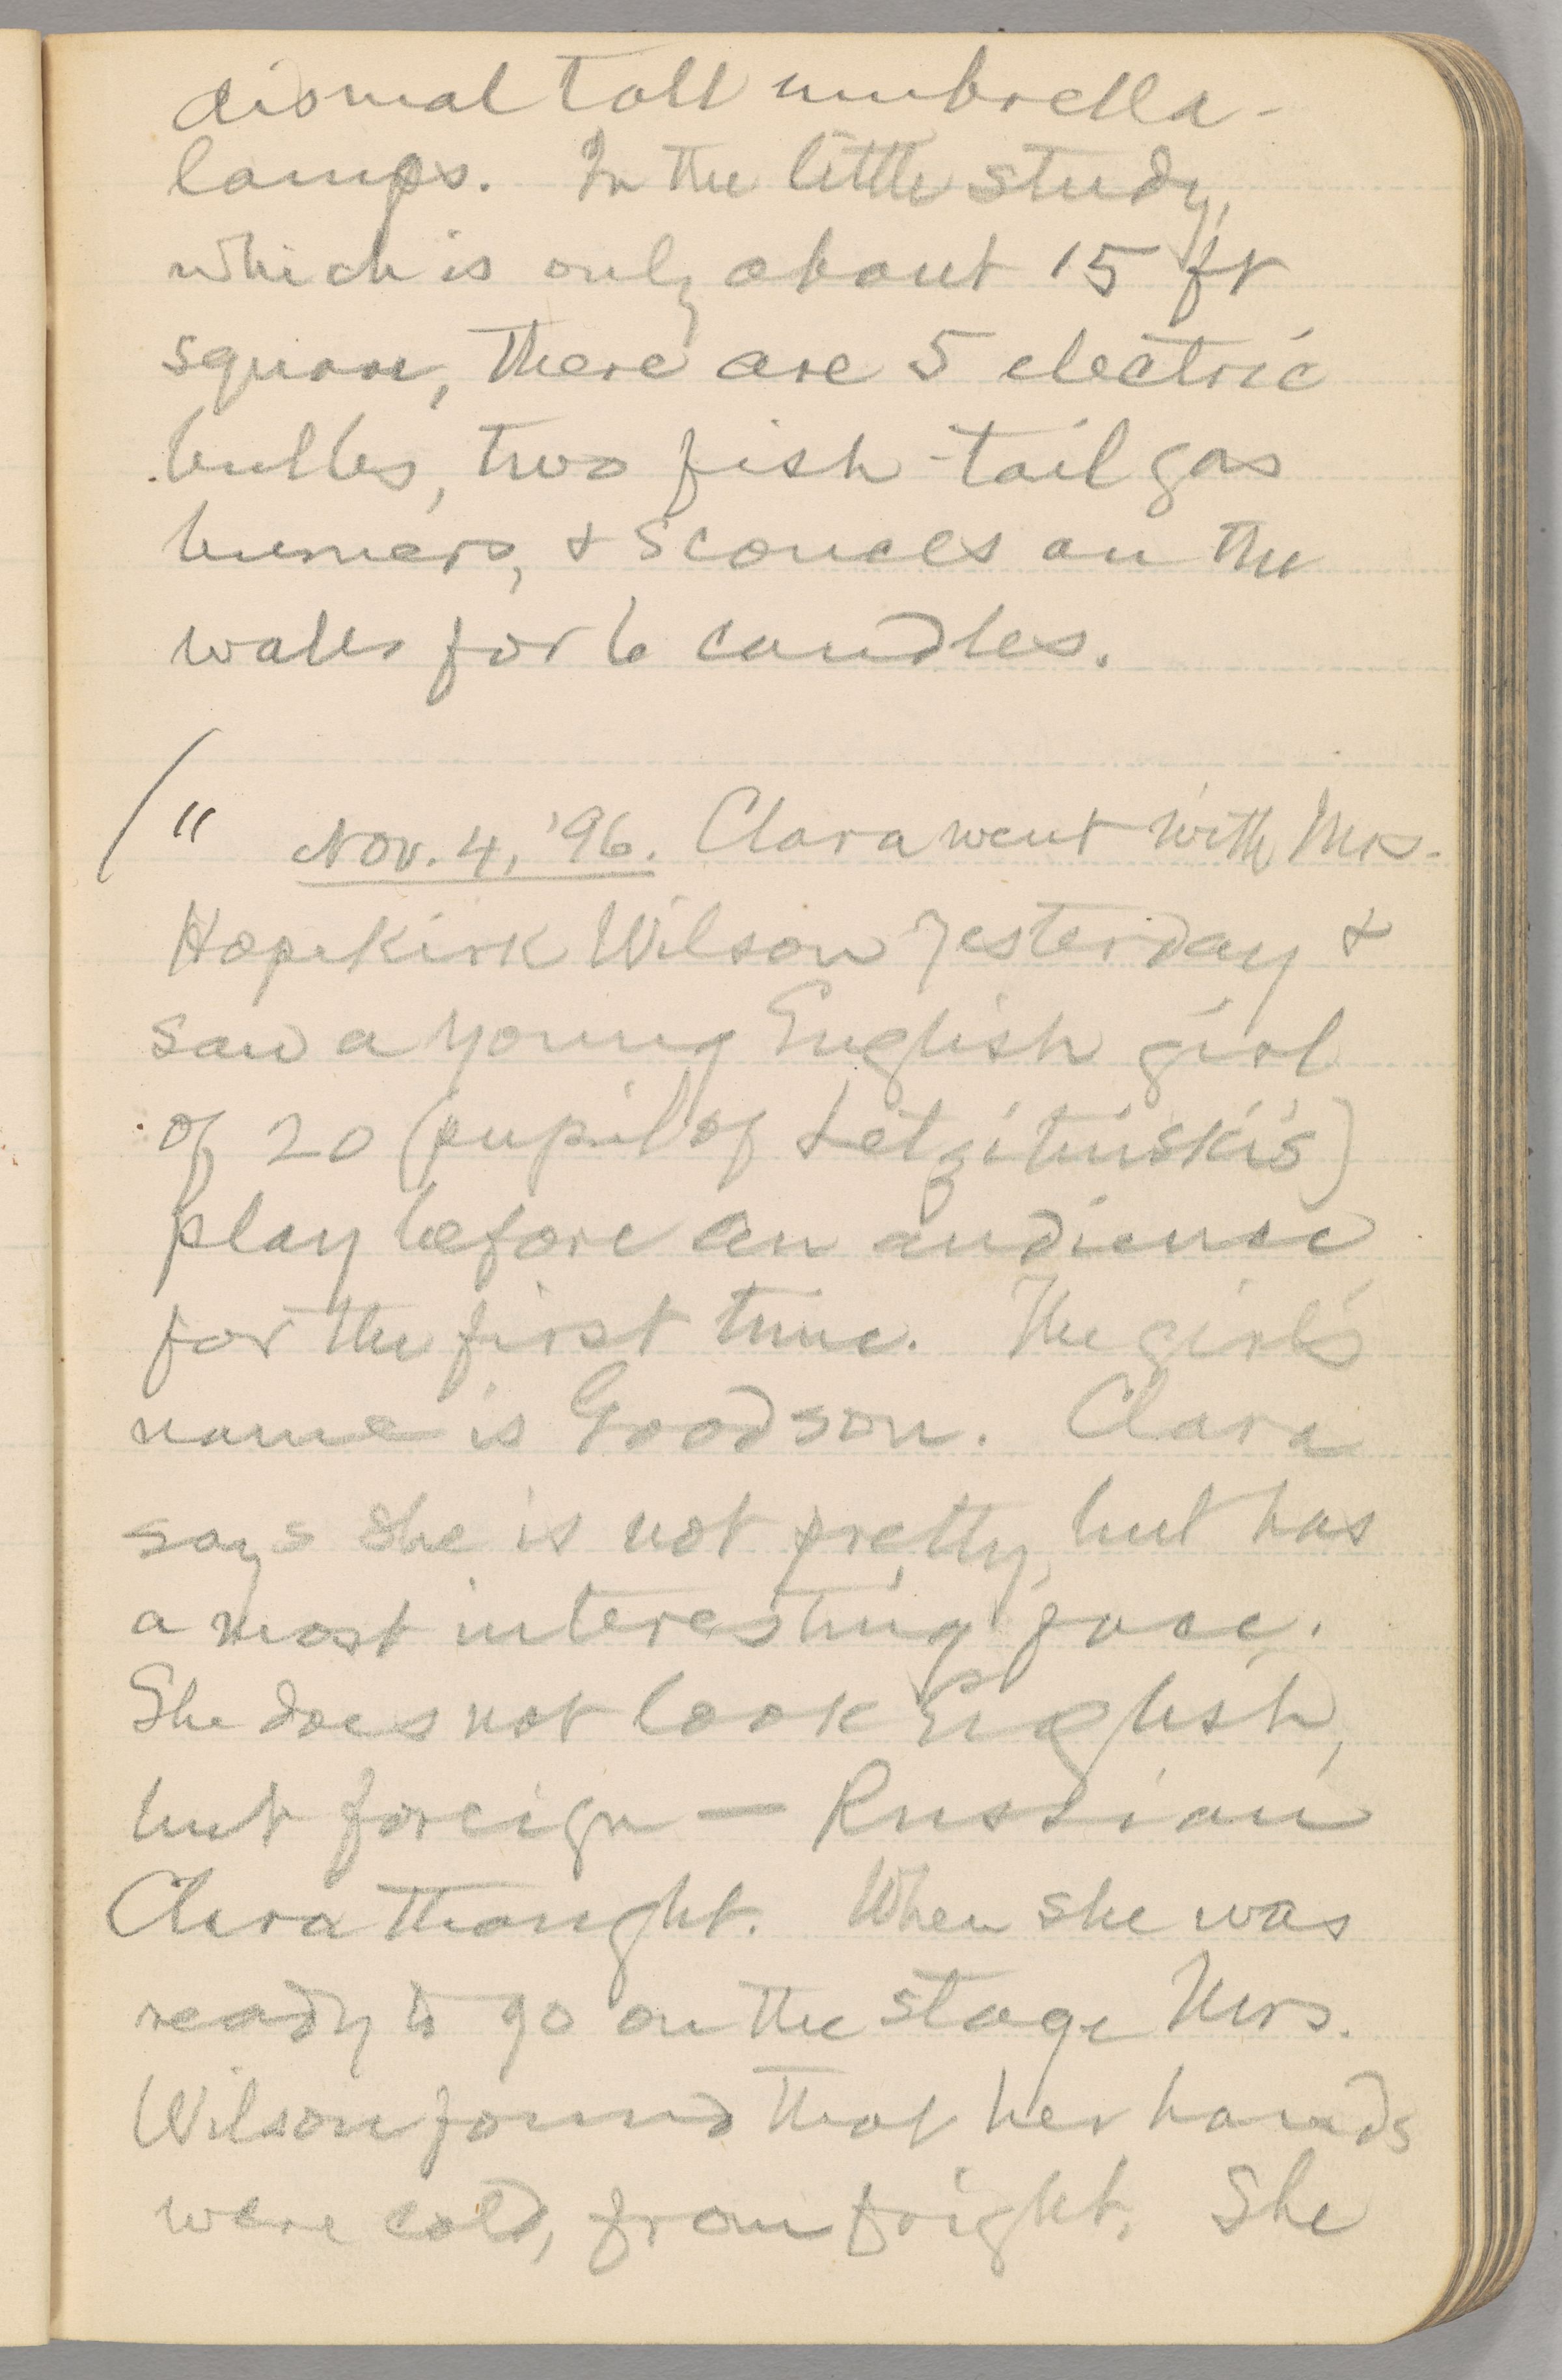 dismal tall umbrella-
lamps. In the little study,
which is only about 15 ft
square, there are 5 electric
bulbs, two fish-tail gas
burners, & sconces on the
walls for 6 candles.
(" Nov. 4, '96. Clara went with Mrs.
Hopekirk Wilson yesterday &
saw a young English girl
of 20 (pupil of Letzitinski's)
play before an audience
for the first time. The girl's
name is Goodson. Clara
says she is not pretty, but has
a most interesting face.
She does not look English,
but foreign — Russian
Clara thought. When she was
ready to go on the stage Mrs.
Wilson found that her hands
were cold, from fright. She